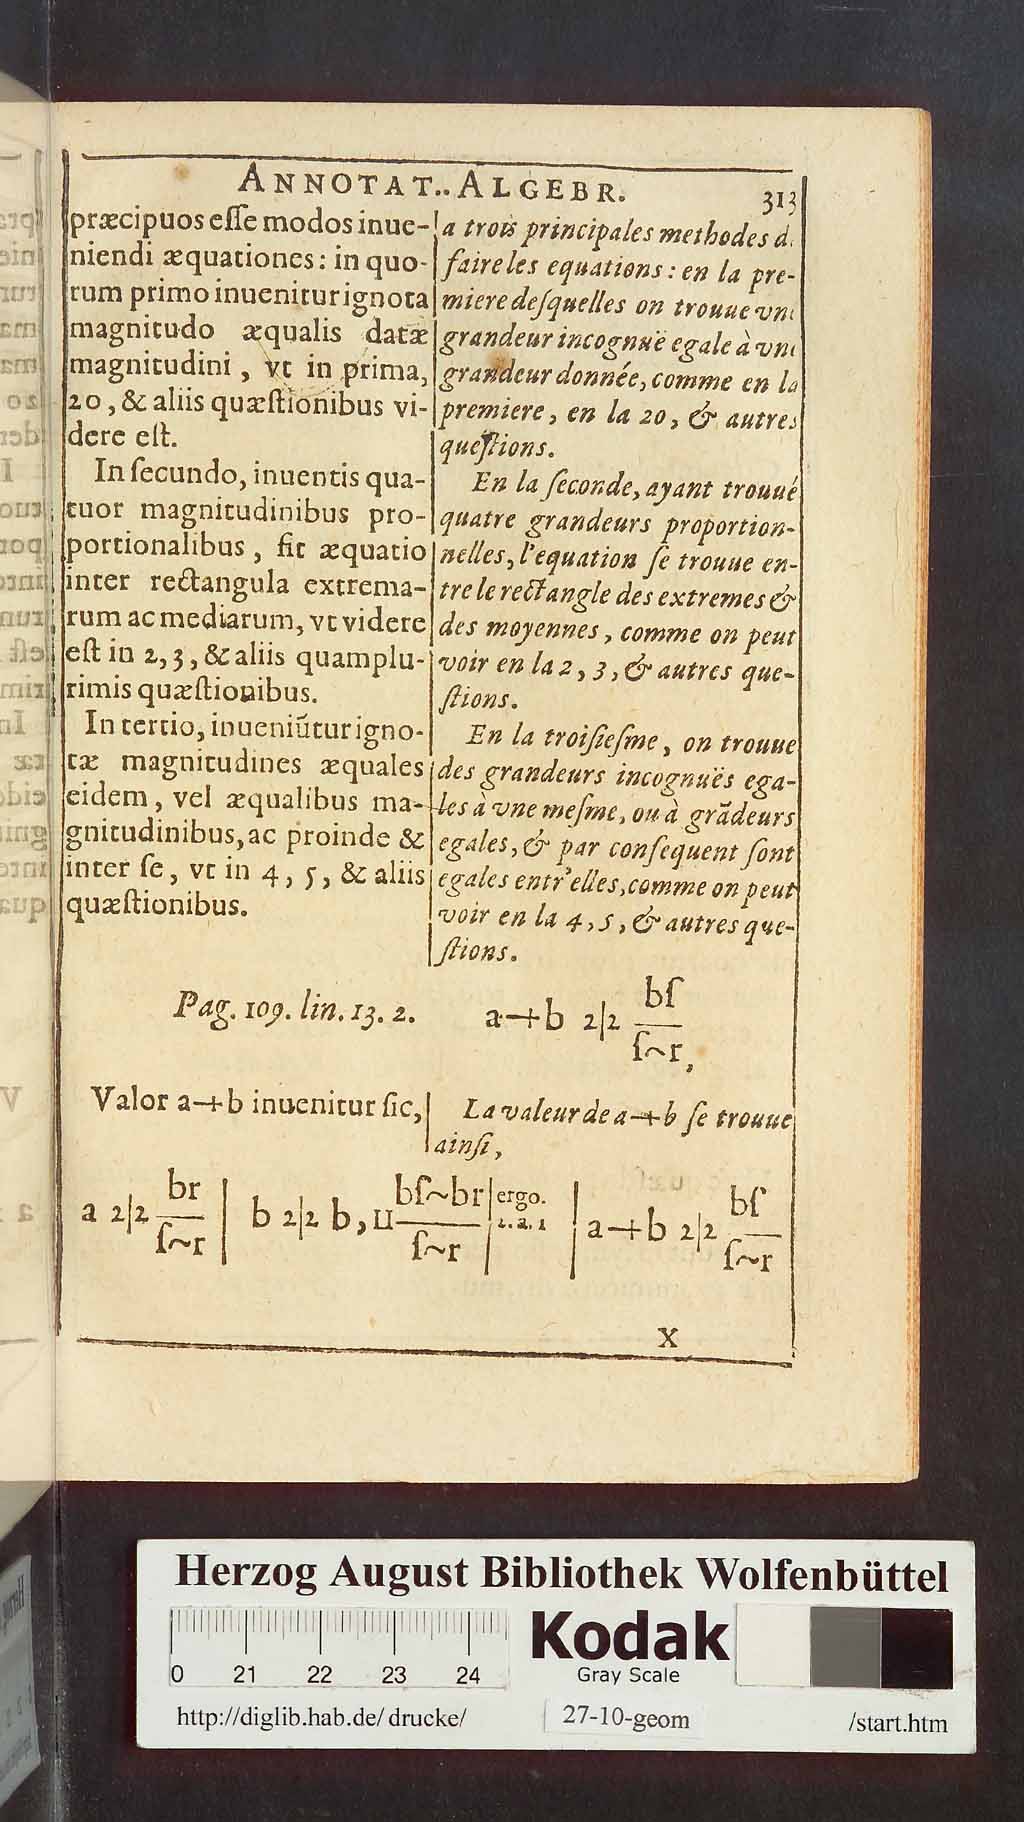 ANNOTAT.. ALGEBR. 313
præcipuos eſſe modos inue-
niendi æquationes: in quo-
rum primo inuenitur ignota
magnitudo æqualis datæ
magnitudini, vt in prima,
20, & aliis quæſtionibus vi-
dere eſt.
In ſecundo, inuentis qua-
tuor magnitudinibus pro-
portionalibus, fit æquatio
inter rectangula extrema-
rum ac mediarum, vt videre
eſt in 2, 3, & aliis quamplu-
rimis quæſtionibus.
In tertio, inueniūtur igno-
tæ magnitudines æquales
eidem, vel æqualibus ma-
gnitudinibus, ac proinde &
inter ſe, vt in 4, 5, & aliis
quæſtionibus.
a trois principales methodes d
faire les equations: en la pre-
miere deſquelles on trouue vn
grandeur incognuë egale à vn
grandeur donnée, comme en la
premiere, en la 20, & autres
queſtions.
En la ſeconde, ayant trouué
quatre grandeurs proportion-
nelles, l'equation ſe trouue en-
tre le rectangle des extremes &
des moyennes, comme on peut
voir en la 2, 3, & autres que-
ſtions.
En la troiſieſme, on trouue
des grandeurs incognuës ega-
les à vne meſme, ou à grãdeurs
egales, & par conſequent ſont
egales entr'elles, comme on peut
voir en la 4, 5, & autres que-
ſtions.
Pag. 109. lin. 13. 2. a+b 2|2 bſ
ſ~r,
Valor a+b inuenitur ſic,
La valeur de a+b ſe trouue
ainſi,
a 2|2 br | b 2|2 b, II bſ~br | ergo. | a+b 2|2 bſ
ſ~r ſ~r 2. a. 1 ſ~r
X
Herzog August Bibliothek Wolfenbüttel
0 21 22 23 24
Kodak
Gray Scale
http://diglib.hab.de/ drucke/ 27-10-geom /start.htm